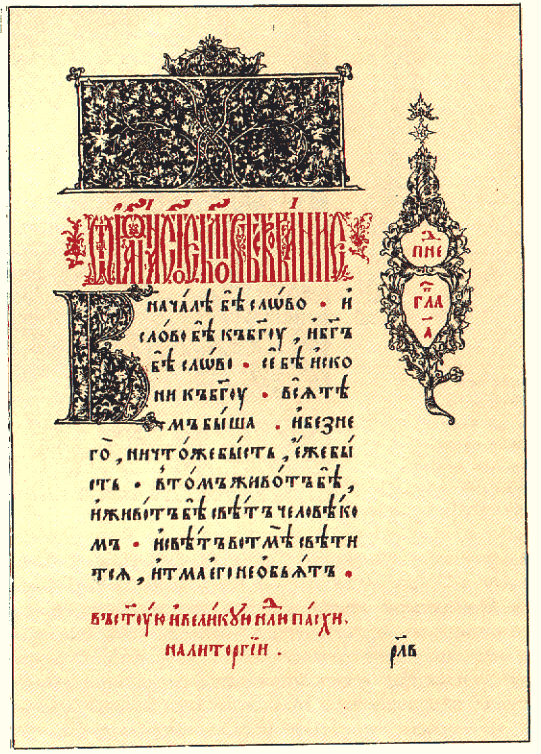 В начáлѣ бѣ̀ слóво • и҆
слóво бѣ̀ къ бг҃оу, и҆ бг҃ъ
бѣ̀ слóво • сѐ бѣ̀ и҆ско
ни къ бг҃оу • всѧ тѣ
мъ бы́ша • и҆ без не
го̀, ничтóже бы́сть, е҆́же бы́
сть • в тóмъ живóтъ бѣ̀,
и҆ живóтъ бѣ̀ свѣ́тъ человѣ́ко
мъ • и҆ свѣ́тъ во тмѣ̀ свѣ́ти
тсѧ, и҆ тма его̀ не обьѧ́тъ •
въ ст҃оую и҆ великоую нл҃и пáсхи,
на литоргі́и .
гл҃а
а҃
рл҃в